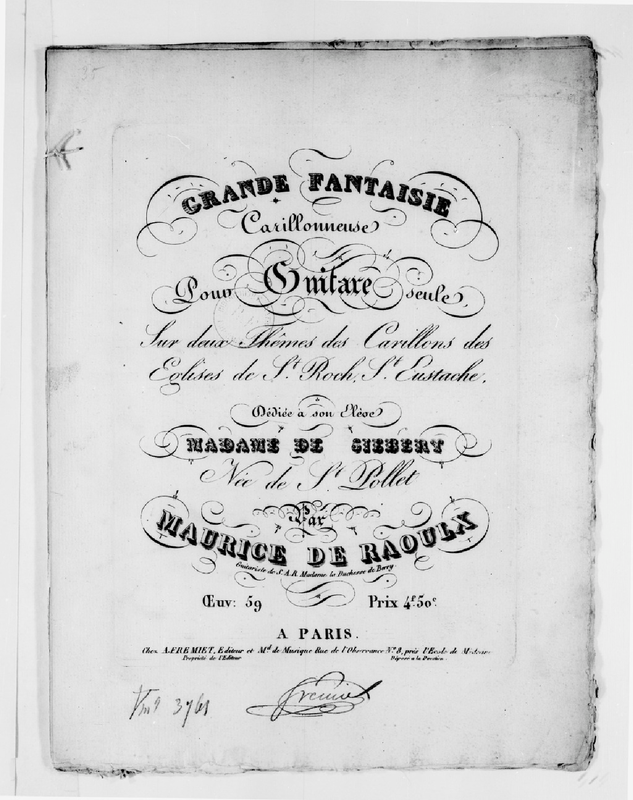 GRANDE FANTAISIE
Carillonneuse
Pour Guitare seule
Sur deux Thêmes des Carillons des
Eglises de St. Roch, St. Eustache,
Dédiée à son Elève
MADAME DE SIEBERT
Née de St. Pollet
Par
MAURICE DE RAOULX
Guitariste de S.A.R. Madame la Duchesse de Berry
Œuv: 59 Prix 4f. 50c.
A PARIS.
Chez A.FREMIET, Editeur et Md. de Musique Rue de l'Observance No. 8, près l'Ecole de Médecine
Propriété de l'Editeur Déposée à la Direction
Vm9 3761